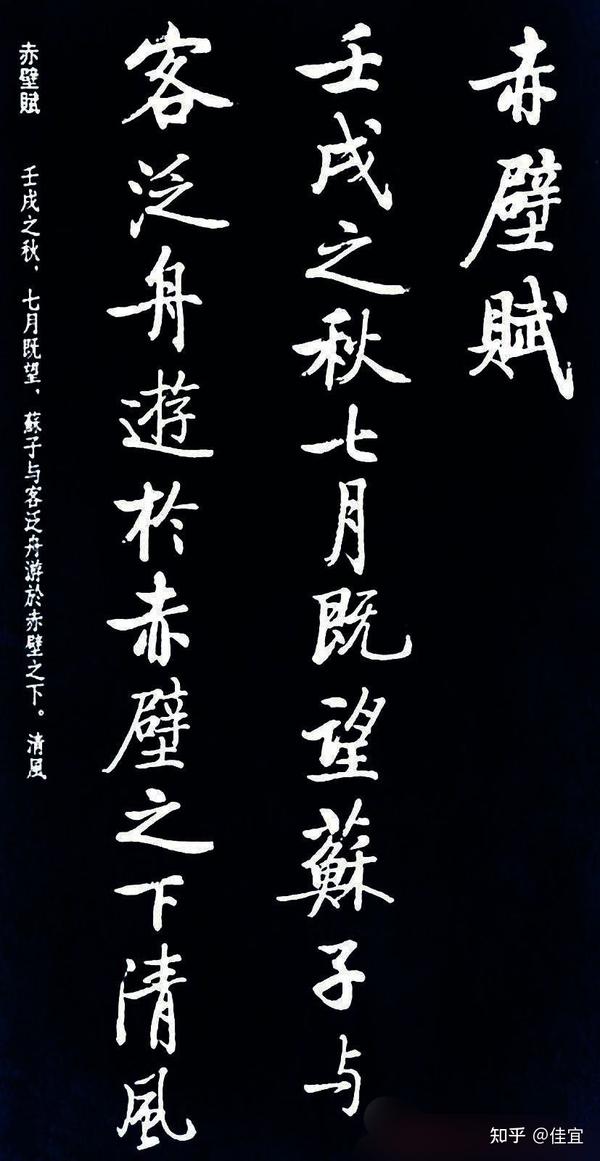 赤壁賦
壬戌之秋七月既望蘇子与
客泛舟遊於赤壁之下清風
赤壁賦　壬戌之秋，七月既望，蘇子与客泛舟游於赤壁之下。清風
知乎 @佳宜